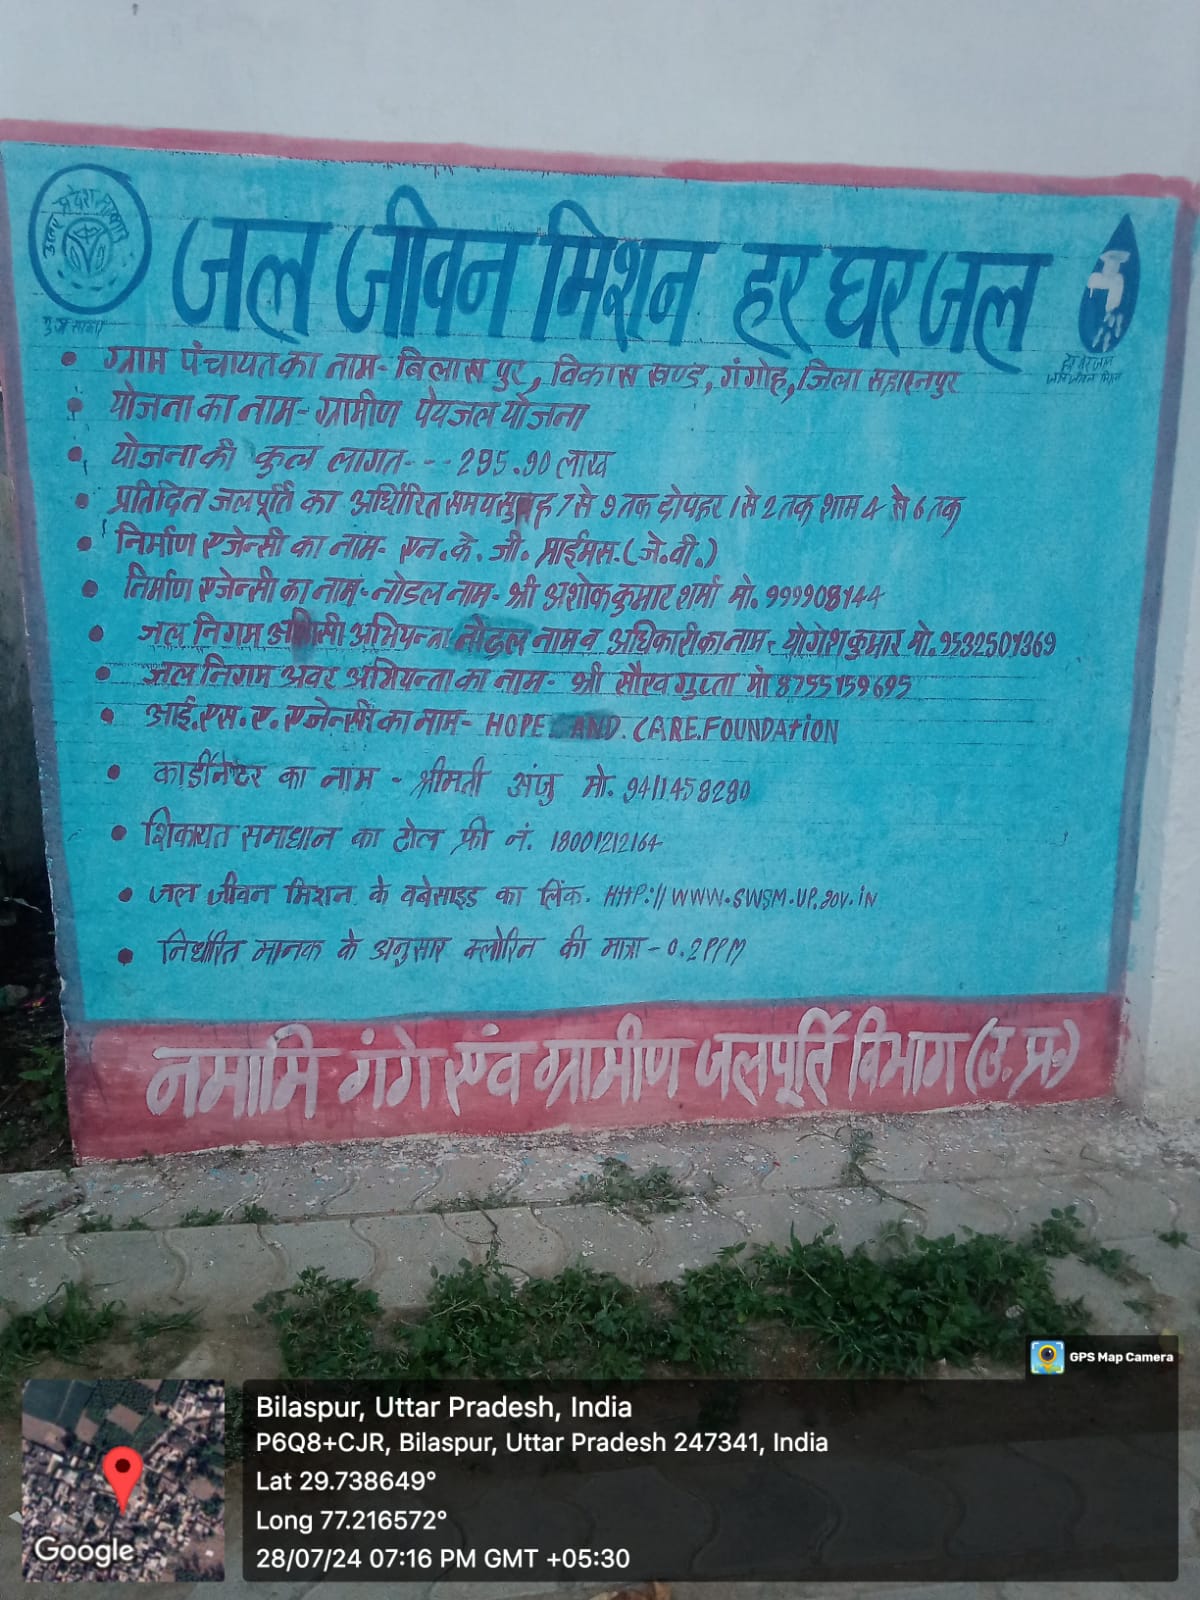 उत्तर प्रदेश सरकार
जल जीवन मिशन हर घर जल
हर घर जल
जल जीवन मिशन
• ग्राम पंचायत का नाम- बिलासपुर, विकास खण्ड, गंगोह, जिला सहारनपुर
• योजना का नाम- ग्रामीण पेयजल योजना
• योजना की कुल लागत--- 295.90 लाख
• प्रतिदित जलपूर्ति का समय सुबह 7 से 9 तक दोपहर 1 से 2 तक शाम 4 से 6 तक
• निर्माण एजेन्सी का नाम- एन.के.जी. प्राईमस.(जे.वी.)
• निर्माण एजेन्सी का नाम-नोडल नाम- श्री अशोक कुमार शर्मा मो.
• जल निगम अभियन्ता नोडल नाम व अधिकारी का नाम- योगेश कुमार मो.
• जल निगम अवर अभियन्ता का नाम- श्री सौरव गुप्ता मो 8755159695
• आई.एस.ए. एजेन्सी का नाम- HOPE AND CARE.FOUNDATION
• कार्डीनेटर का नाम - श्रीमती अंजु मो. 9411458280
• शिकायत समाधान का टोल फ्री नं. 18001212164
• जल जीवन मिशन के वबेसाइड का लिंक. HttP://WWW.SWSM.UP.gov.iN
• निर्धारित मानक के अनुसार क्लोरिन की मात्रा - 0.2PPM
नमामि गंगे एंव ग्रामीण जलपूर्ति विभाग (उ.प्र.)
GPS Map Camera
Bilaspur, Uttar Pradesh, India
P6Q8+CJR, Bilaspur, Uttar Pradesh 247341, India
Lat 29.738649°
Long 77.216572°
28/07/24 07:16 PM GMT +05:30
Google